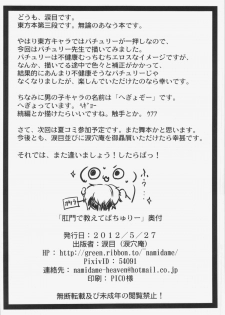 どうも、涙目です。
東方本第三段です。無論のあなう本です。
やはり東方キャラではパチュリーが一押しなので、
今回はパチュリー先生で描いてみました。
パチュリーは不健康むっちむちエロスなイメージですが、
なんか、描いてる途中で色々と補正がかかって、
結果的にあんまり不健康そうなパチュリーじゃ
なくなりましたが、楽しんでいただけたのなら幸いです。
ちなみに男の子キャラの名前は「へぎょぞー」です。
へぎょっています。
続編とか描けたらいいですね。触手とか。
さて、次回は夏コミ参加予定です。また舞本かと思います。
今後とも、涙目並びに涙穴庵を御贔屓いただけたら幸甚です。
それでは、また逢いましょう！したらばっ！
「肛門で教えてぱちゅりー」奥付
発行日：２０１２／５／２７
出版者：涙目（涙穴庵）
HP : http://green.ribbon.to/~namidame/
PixivID : 54091
連絡先：namidame-heaven@hotmail.co.jp
印刷：PICO様
無断転載及び未成年の閲覧禁止！